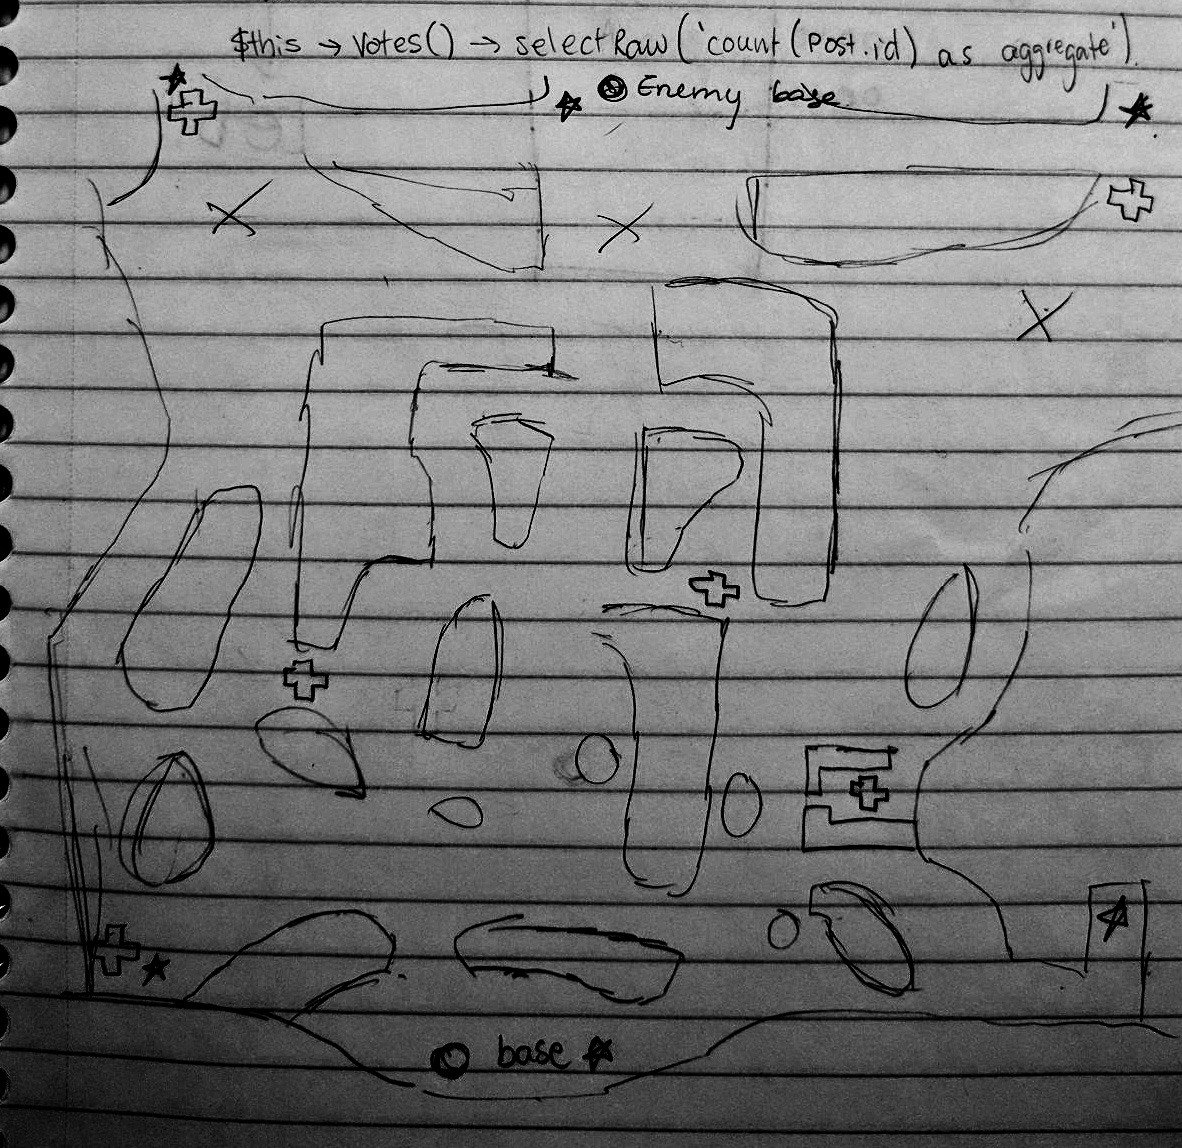 $this → votes() → selectRaw('count(post.id) as aggregate').
Enemy base
base